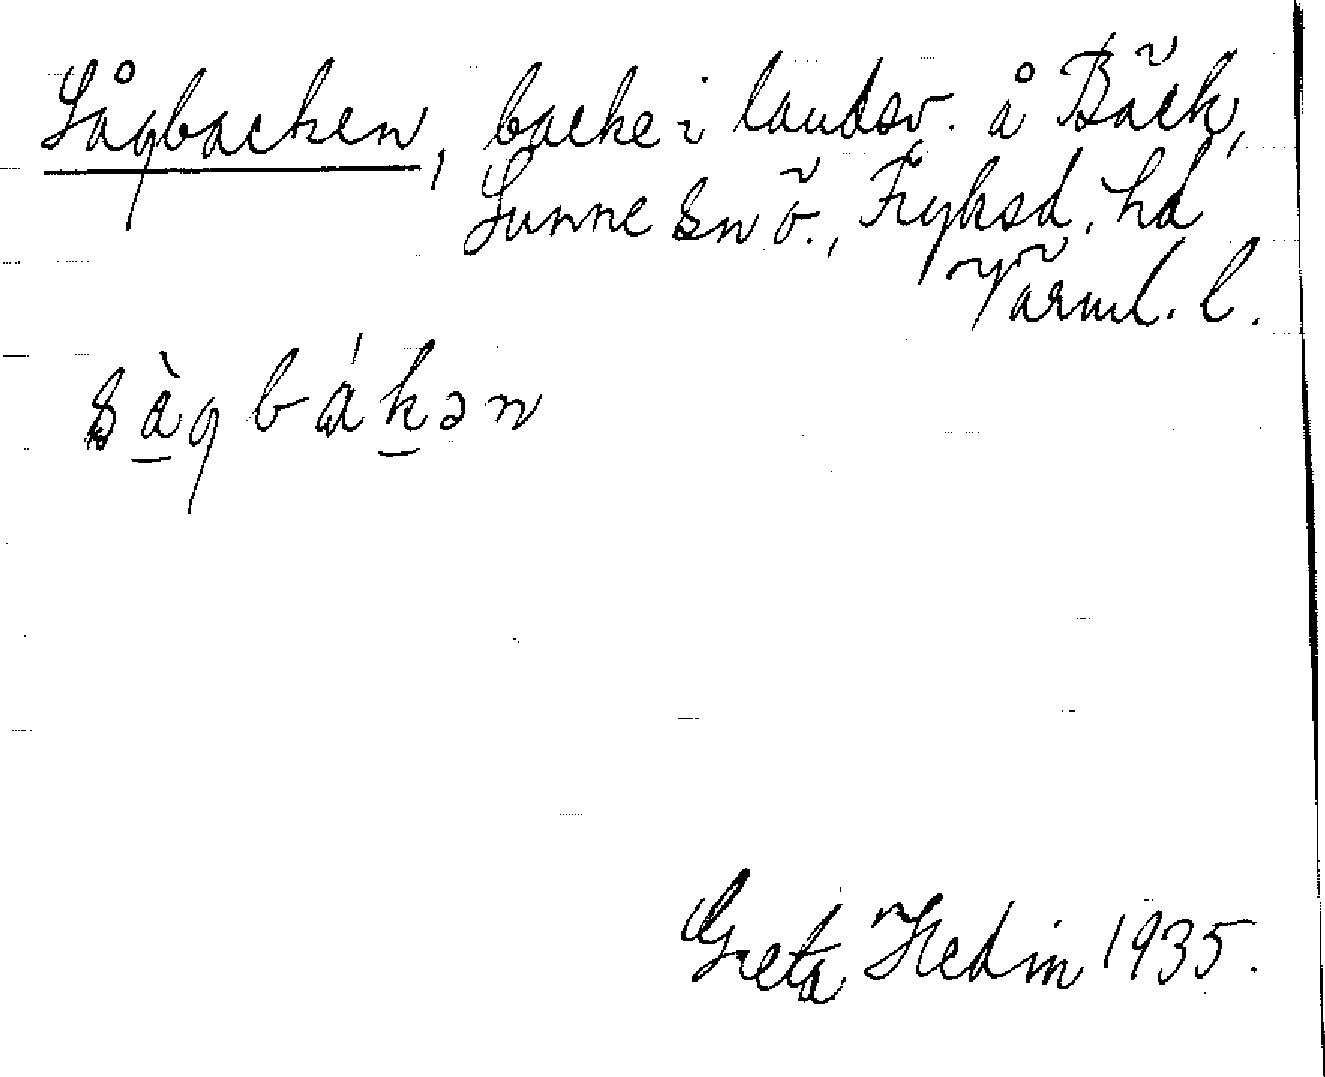 Sågbacken, backe i landsv. å Bäck,
Sunne sn ö., Fryksd. hd
Värml. l.
sàgbákən
Greta Hedin 1935.